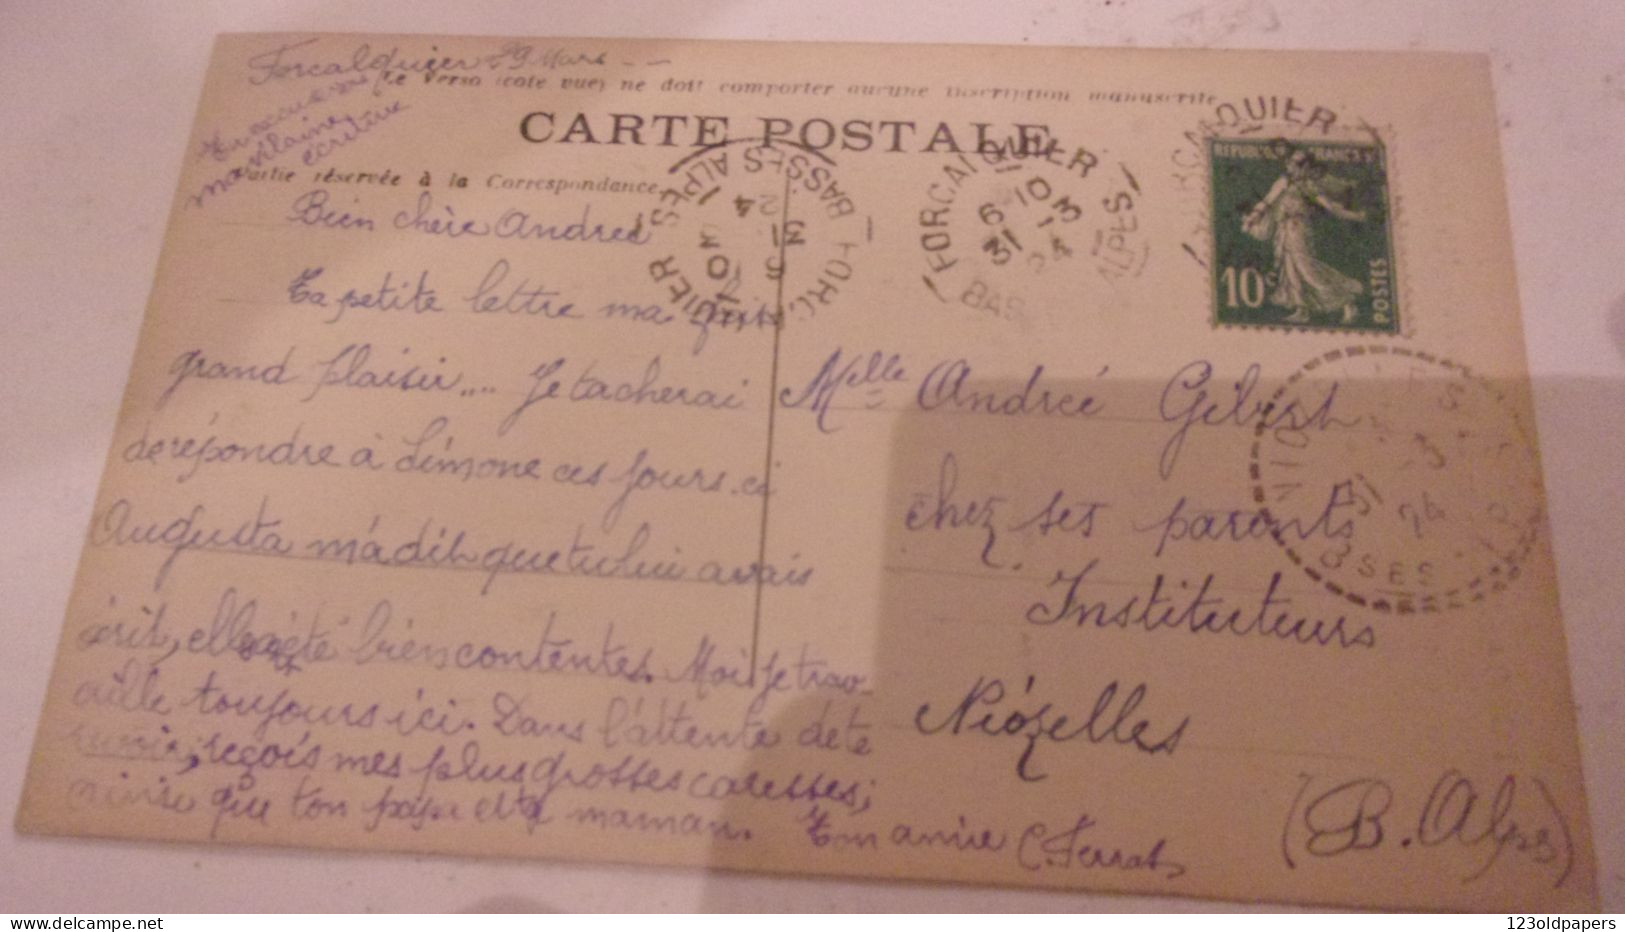 Forcalquier 29 Mars - -
Le Verso (côté vue) ne doit comporter aucune inscription manuscrite
CARTE POSTALE
Partie réservée à la Correspondance
ma vilaine
écriture
Bien chère Andrée
Ta petite lettre ma fait
grand plaisir.... Je tacherai
de répondre à Simone ces jours-ci
Augusta m'a dit que tu lui avais
écrit, elle a été bien contente. Moi je trav-
aille toujours ici. Dans l'attente de te
revoir, reçois mes plus grosses caresses;
ainsi que ton papa et ta maman. Ton amie C. Ferrat
FORCALQUIER
BASSES ALPES
6-10
31 - 3
24
FORCALQUIER
6-10
31 3
24
BAS ALPES
FORCALQUIER
REPUBLIQUE FRANCAISE
10c
POSTES
NIOZELLES
31 - 3
24
BSES ALP
Melle Andrée Gibert
chez ses parents
Instituteurs
Niózelles
(B. Alpes)
123oldpapers